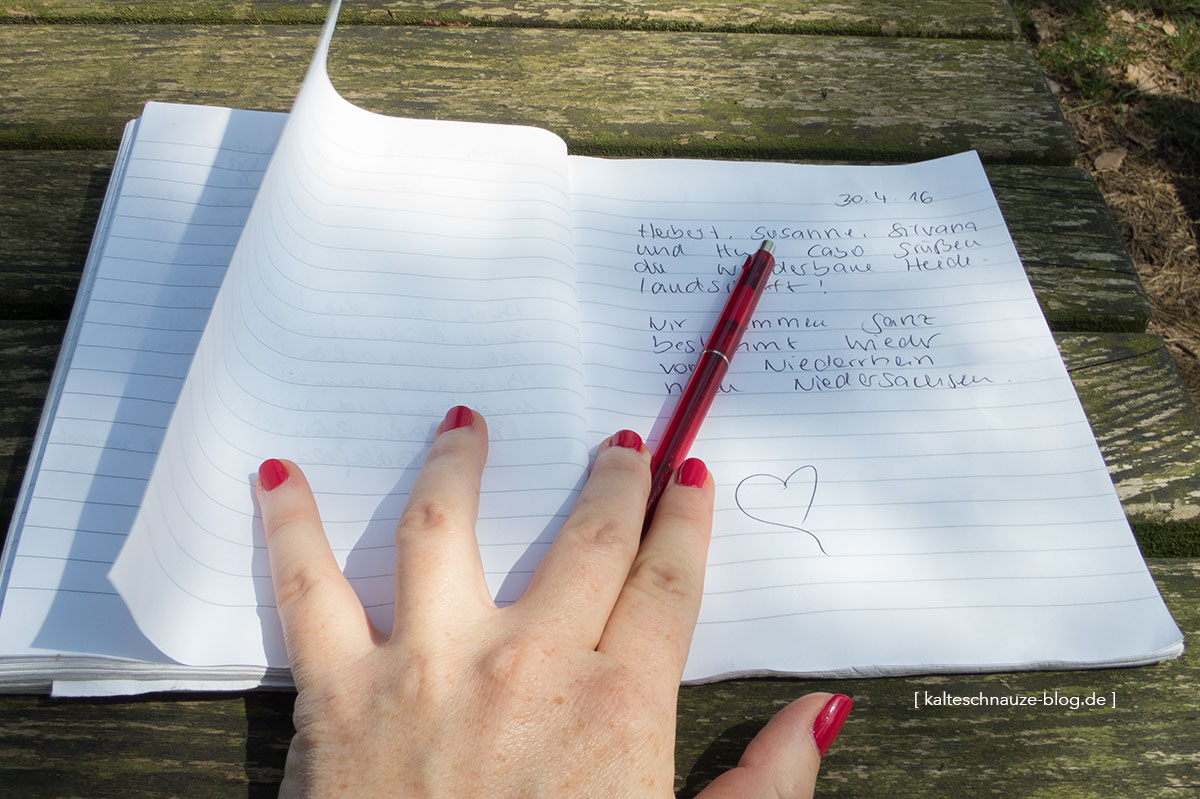 30.4.16
Herbert, Susanne, Silvana
und Hu Caso grüßen
die W derbare Heide-
lands ft!
Wir mmen ganz
bes mmt wieder
vo Niederrhein
n Niedersachsen.
[ kalteschnauze-blog.de ]